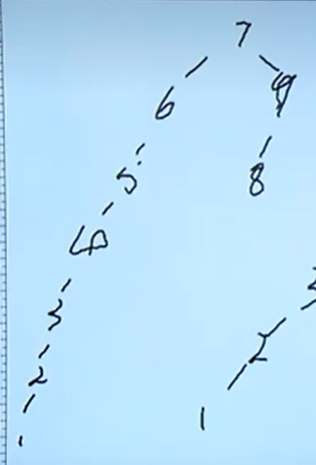 7
6 9
5 8
4
3 3
2 2
1 1